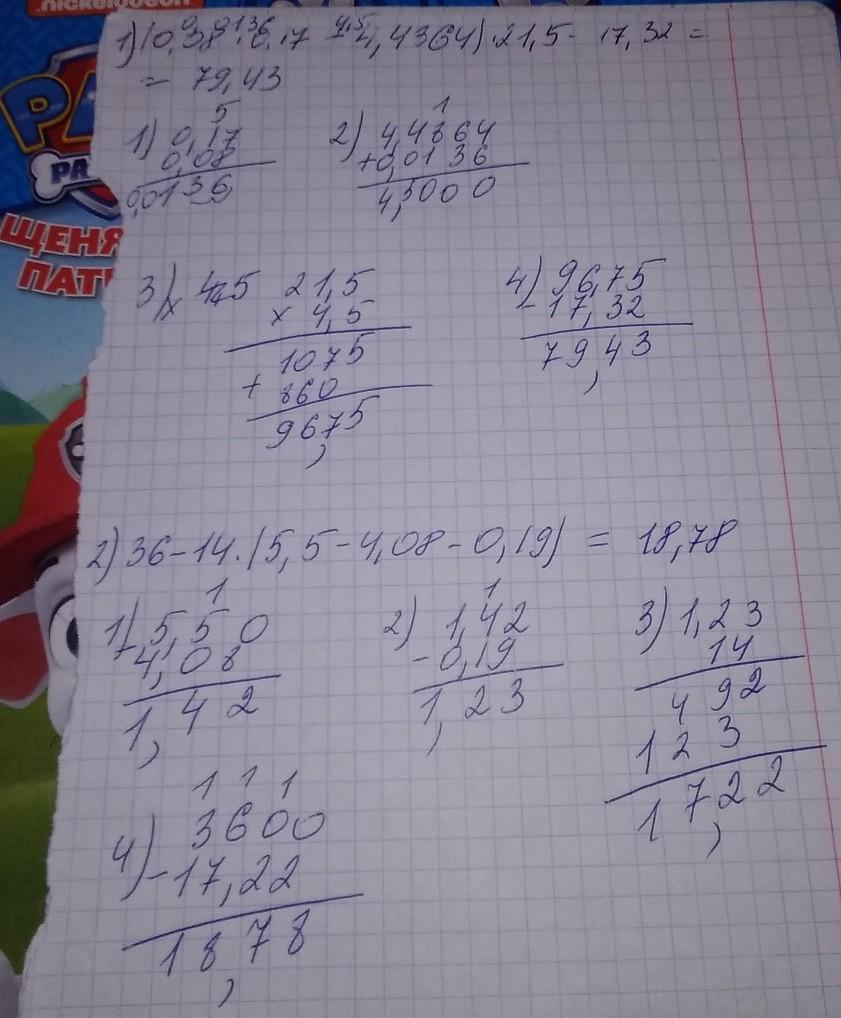 nickelodeon
ЩЕНЯ
ПАТ
1) (0,08 · 0,17 4,4864) · 21,5 - 17,32 =
0,0136 4,5
= 79,43
1) 0,17
0,08
0,0136
2) 4,4864
+0,0136
4,5000
3) × 4,5 21,5
× 4,5
1075
+ 860
96,75
4) 96,75
- 17,32
79,43
2) 36 - 14 · (5,5 - 4,08 - 0,19) = 18,78
1) 5,50
- 4,08
1,42
2) 1,42
- 0,19
1,23
3) 1,23
14
492
123
17,22
4) 3600
- 17,22
18,78